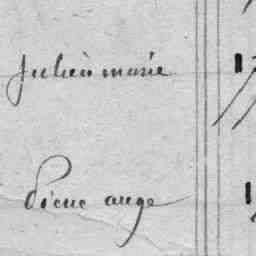 Julien marie 17
Pierre ange 1